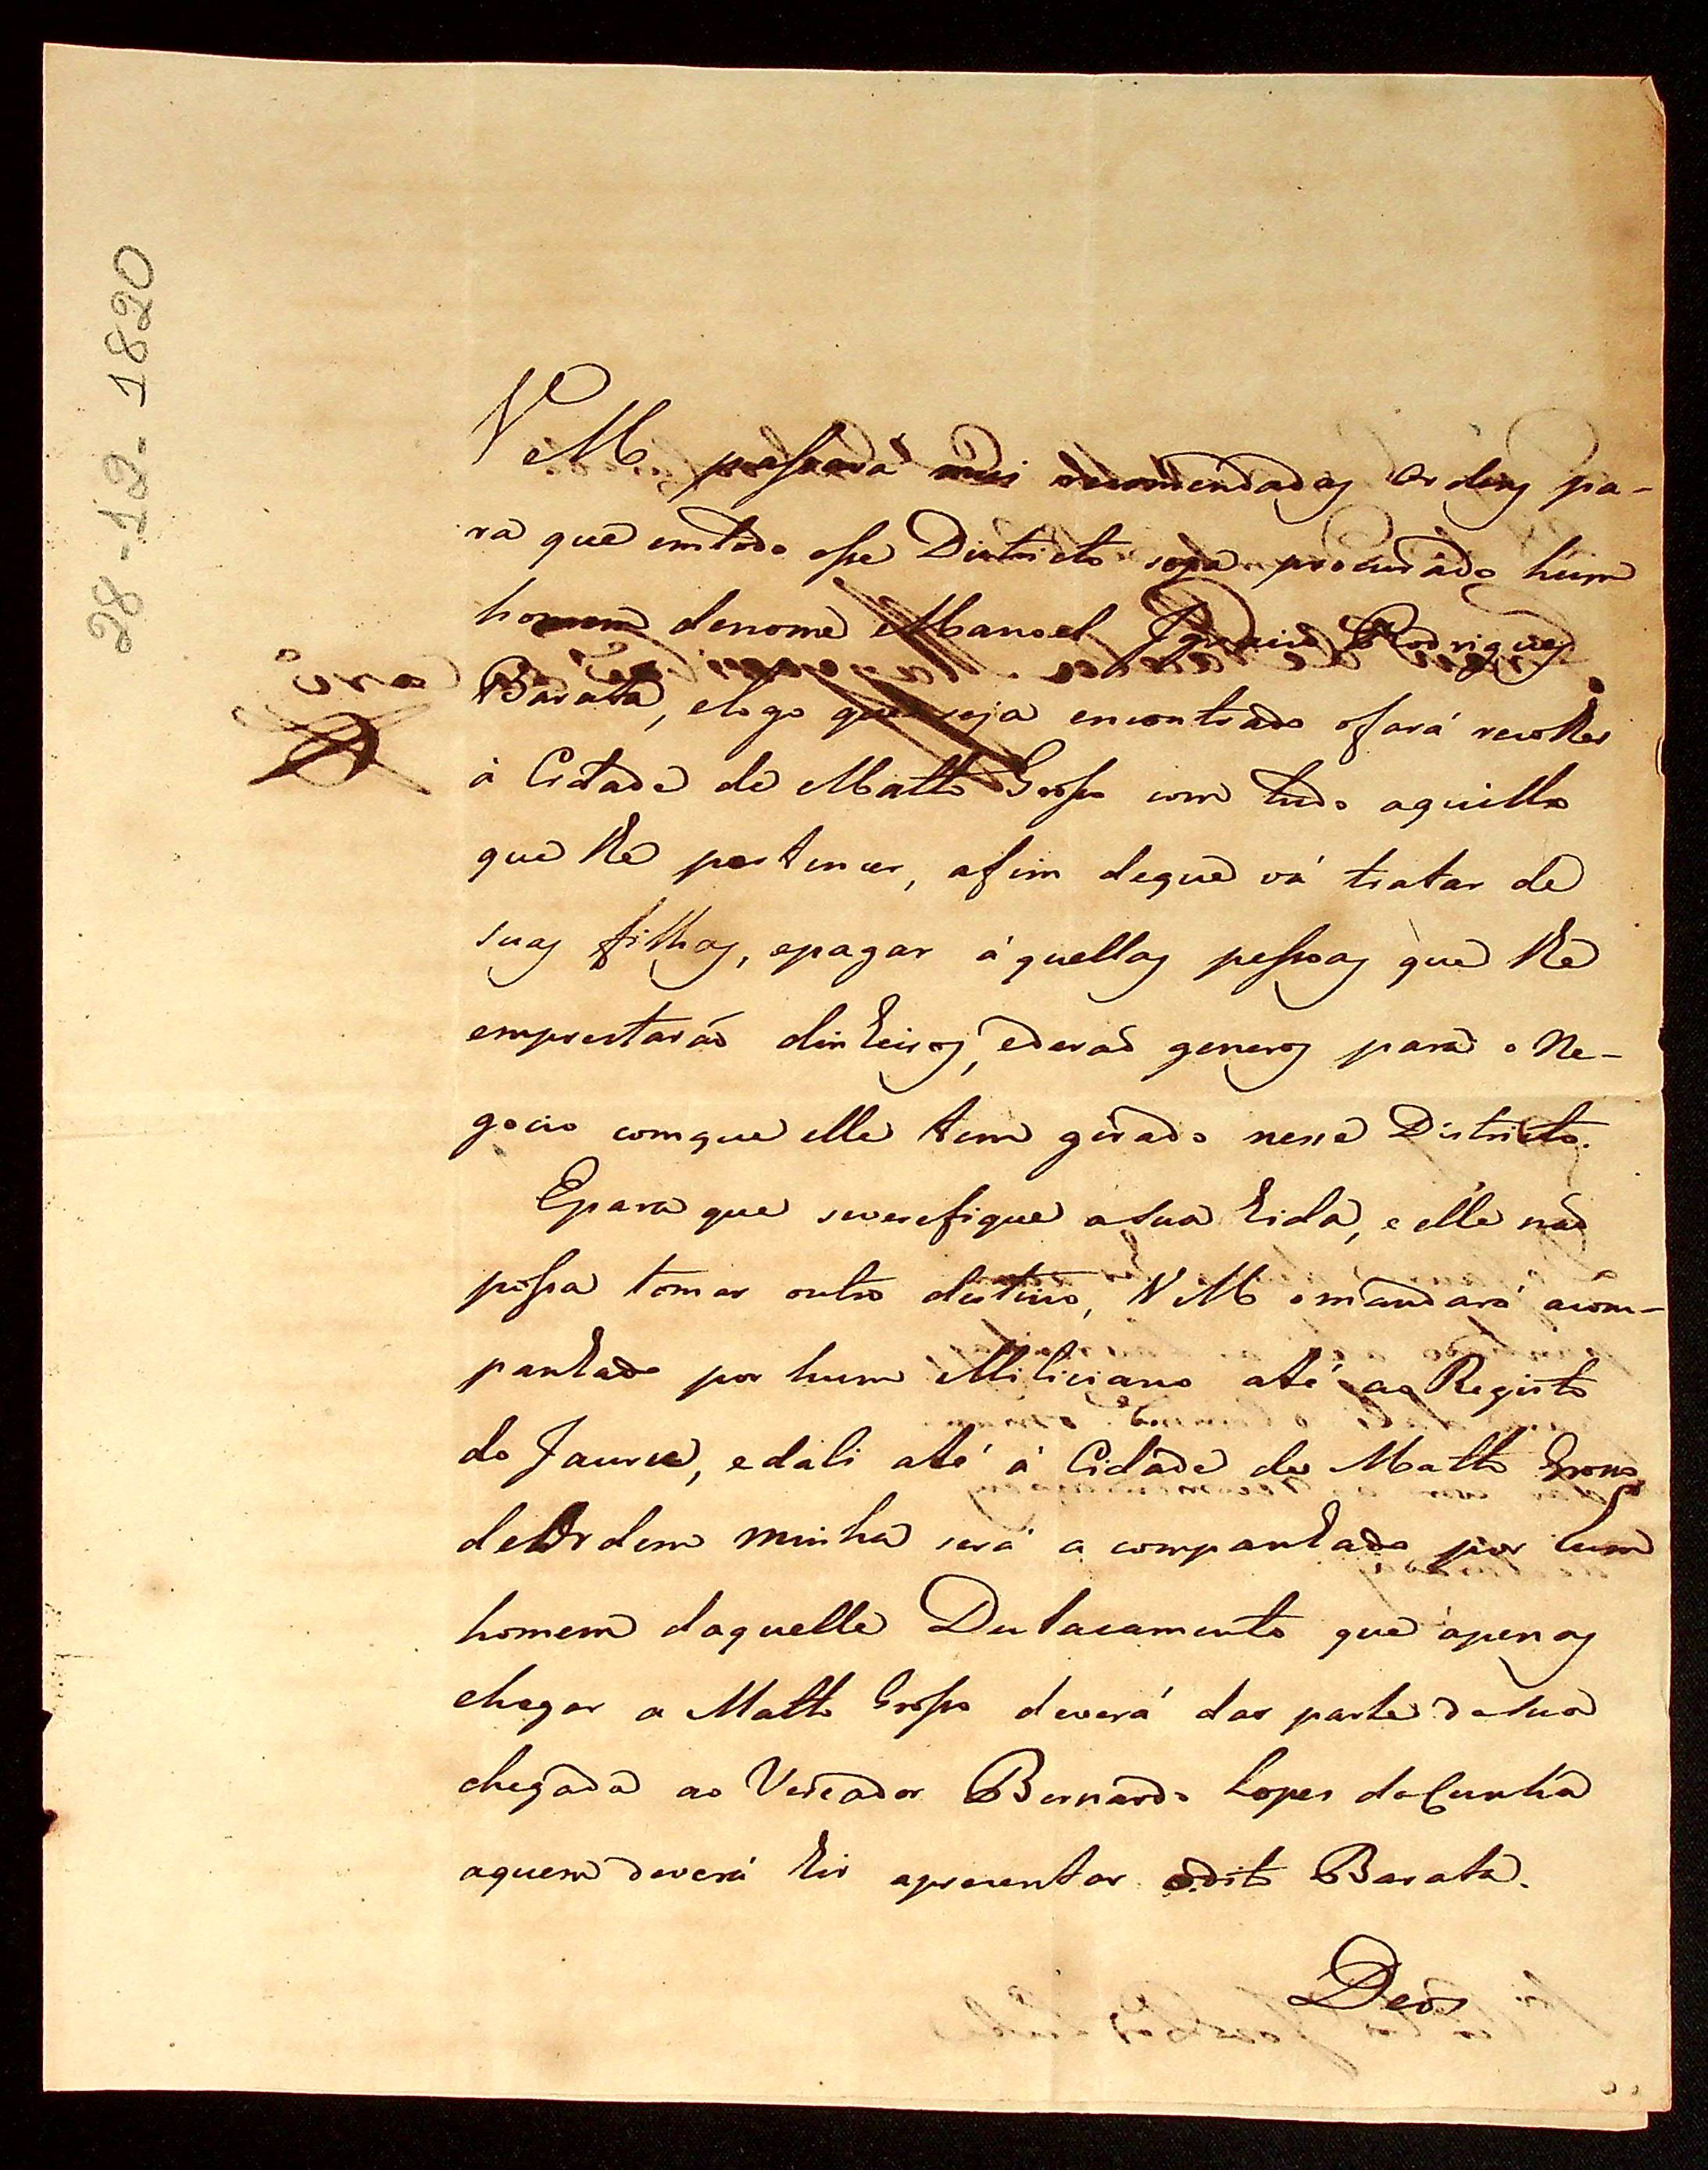 28-12-1820
VM passará mui recomendadas Ordens pa-
ra que emtodo esse Districto seja procurado hum
homem denome Manoel Ignacio Rodrigues
Barata, elogo que seja encontrado ofará recolher
á Cidade de Matto Grosso com tudo aquillo
que lhe pertencer, afim deque vá tratar de
suas filhas, epagar áquellas pessoas que lhe
emprestarão dinheiros, ederão generos para o Ne-
gocio comque elle tem girado nesse Districto.
Epara que severefique asua hida, e elle não
possa tomar outro destino, VM omandará acom-
panhado por hum Miliciano até ao Registo
do Jauru, edali até á Cidade de Matto Grosso
deOrdem minha será acompanhado por hum
homem daquelle Destacamento que apenas
chegar a Matto Grosso deverá dar parte desua
chegada ao Vereador Bernardo Lopes daCunha
aquem deverá hir apresentar odito Barata.
Deos